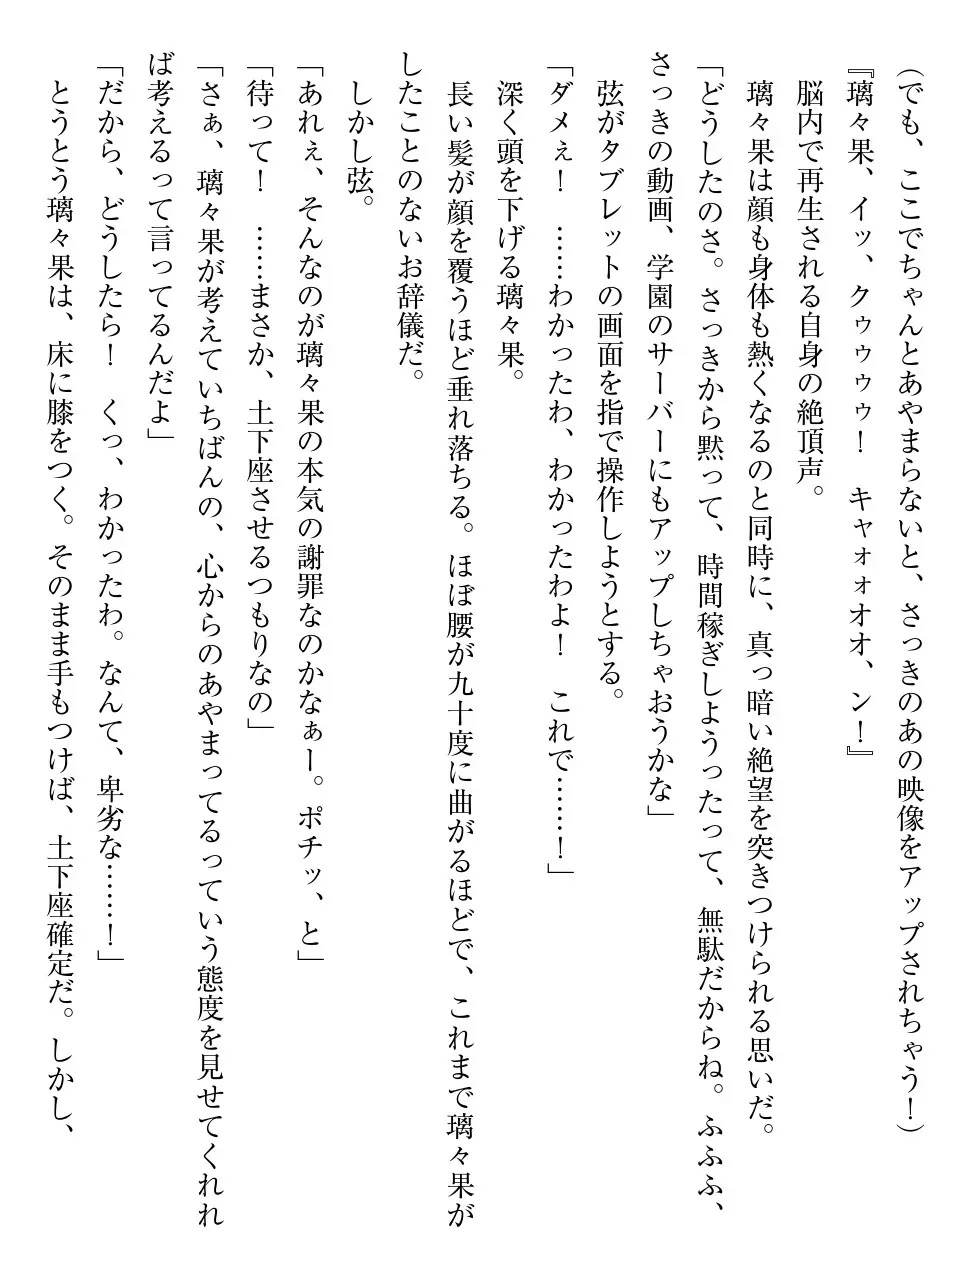 （でも、ここでちゃんとあやまらないと、さっきのあの映像をアップされちゃう！）
『璃々果、イッ、クゥゥゥゥ！　キャォォオオ、ン！』
脳内で再生される自身の絶頂声。
璃々果は顔も身体も熱くなるのと同時に、真っ暗い絶望を突きつけられる思いだ。
「どうしたのさ。さっきから黙って、時間稼ぎしようったって、無駄だからね。ふふふ、
さっきの動画、学園のサーバーにもアップしちゃおうかな」
弦がタブレットの画面を指で操作しようとする。
「ダメぇ！　……わかったわ、わかったわよ！　これで……！」
深く頭を下げる璃々果。
長い髪が顔を覆うほど垂れ落ちる。ほぼ腰が九十度に曲がるほどで、これまで璃々果が
したことのないお辞儀だ。
しかし弦。
「あれぇ、そんなのが璃々果の本気の謝罪なのかなぁー。ポチッ、と」
「待って！　……まさか、土下座させるつもりなの」
「さぁ、璃々果が考えていちばんの、心からのあやまってるっていう態度を見せてくれれ
ば考えるって言ってるんだよ」
「だから、どうしたら！　くっ、わかったわ。なんて、卑劣な……！」
とうとう璃々果は、床に膝をつく。そのまま手もつけば、土下座確定だ。しかし、